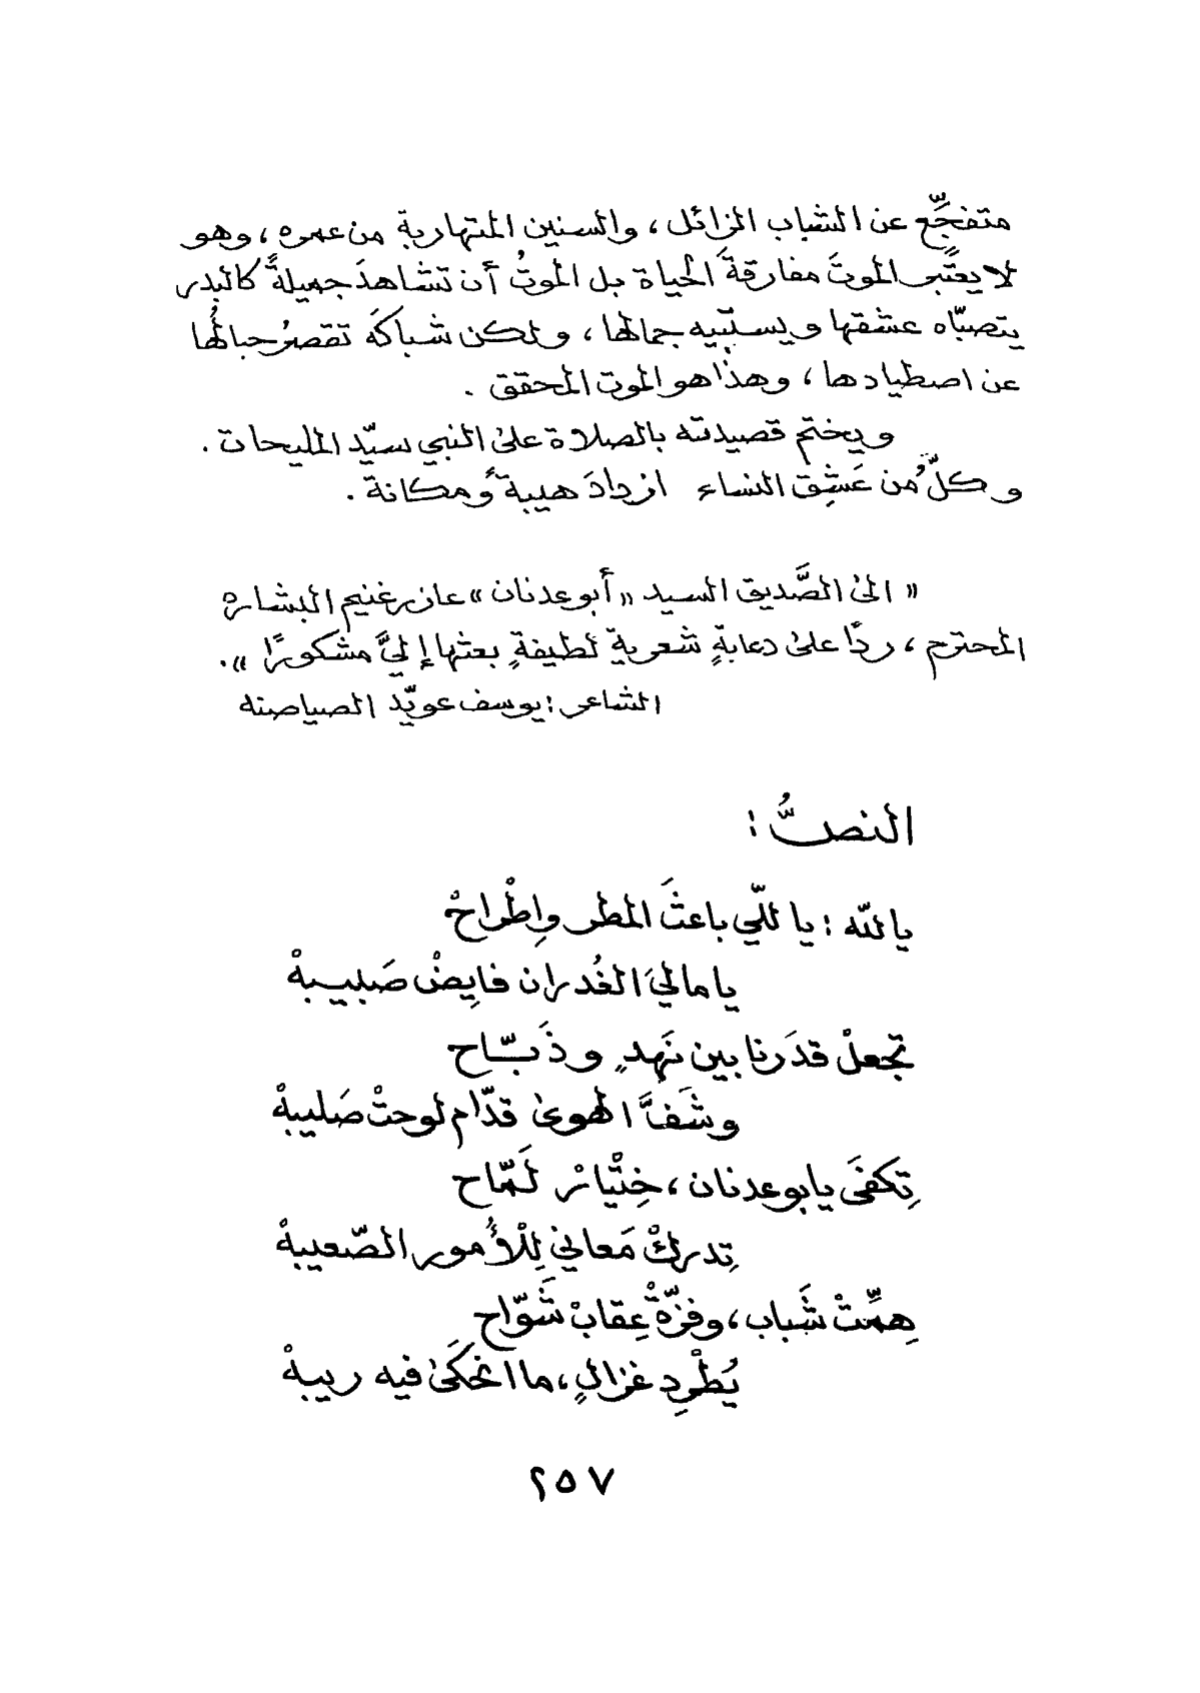 متفجِّع عن الشباب الزائل ، والسنين المتهاربة من عمره ، وهو
لا يعتبر الموتَ مفارقةَ الحياة بل الموتُ أن تشاهدَ جميلةً كالبدر
يتصبّاه عشقها ويستبيه جمالها ، ولكن شباكَه تقصرُ حبالُها
عن اصطيادها ، وهذا هو الموت المحقق .
ويختم قصيدته بالصلاة على النبي سيّد المليحات .
وكلُّ من عَشِق النساء ازدادَ هيبةً ومكانة .
« الى الصَّديق السيد « أبو عدنان » عازر غنيم البشاره
المحترم ، ردًا على دعابةٍ شعريةٍ لطيفةٍ بعثها إليَّ مشكورًا » .
الشاعر : يوسف عويّد الصياصنه
النصُّ :
يالله : يا للّي باعثَ المطر واِطْراحْ
يا ماليَ الغُدران فايِضْ صَبيبهْ
تجعلْ قدَرنا بين نَهدٍ وذَبّاح
وشَفَّا الهوى قدّام لوحتْ صَليبهْ
تِكفَى يا بو عدنان ، خِتْيارْ لَمّاح
تِدركْ مَعاني لِلْأُمور الصّعيبهْ
هِمِّتْ شَباب ، وفزّةْ عِقابْ شَوّاح
يُطْرِد غزالٍ ، ما انحكَى فيه ريبهْ
٢٥٧